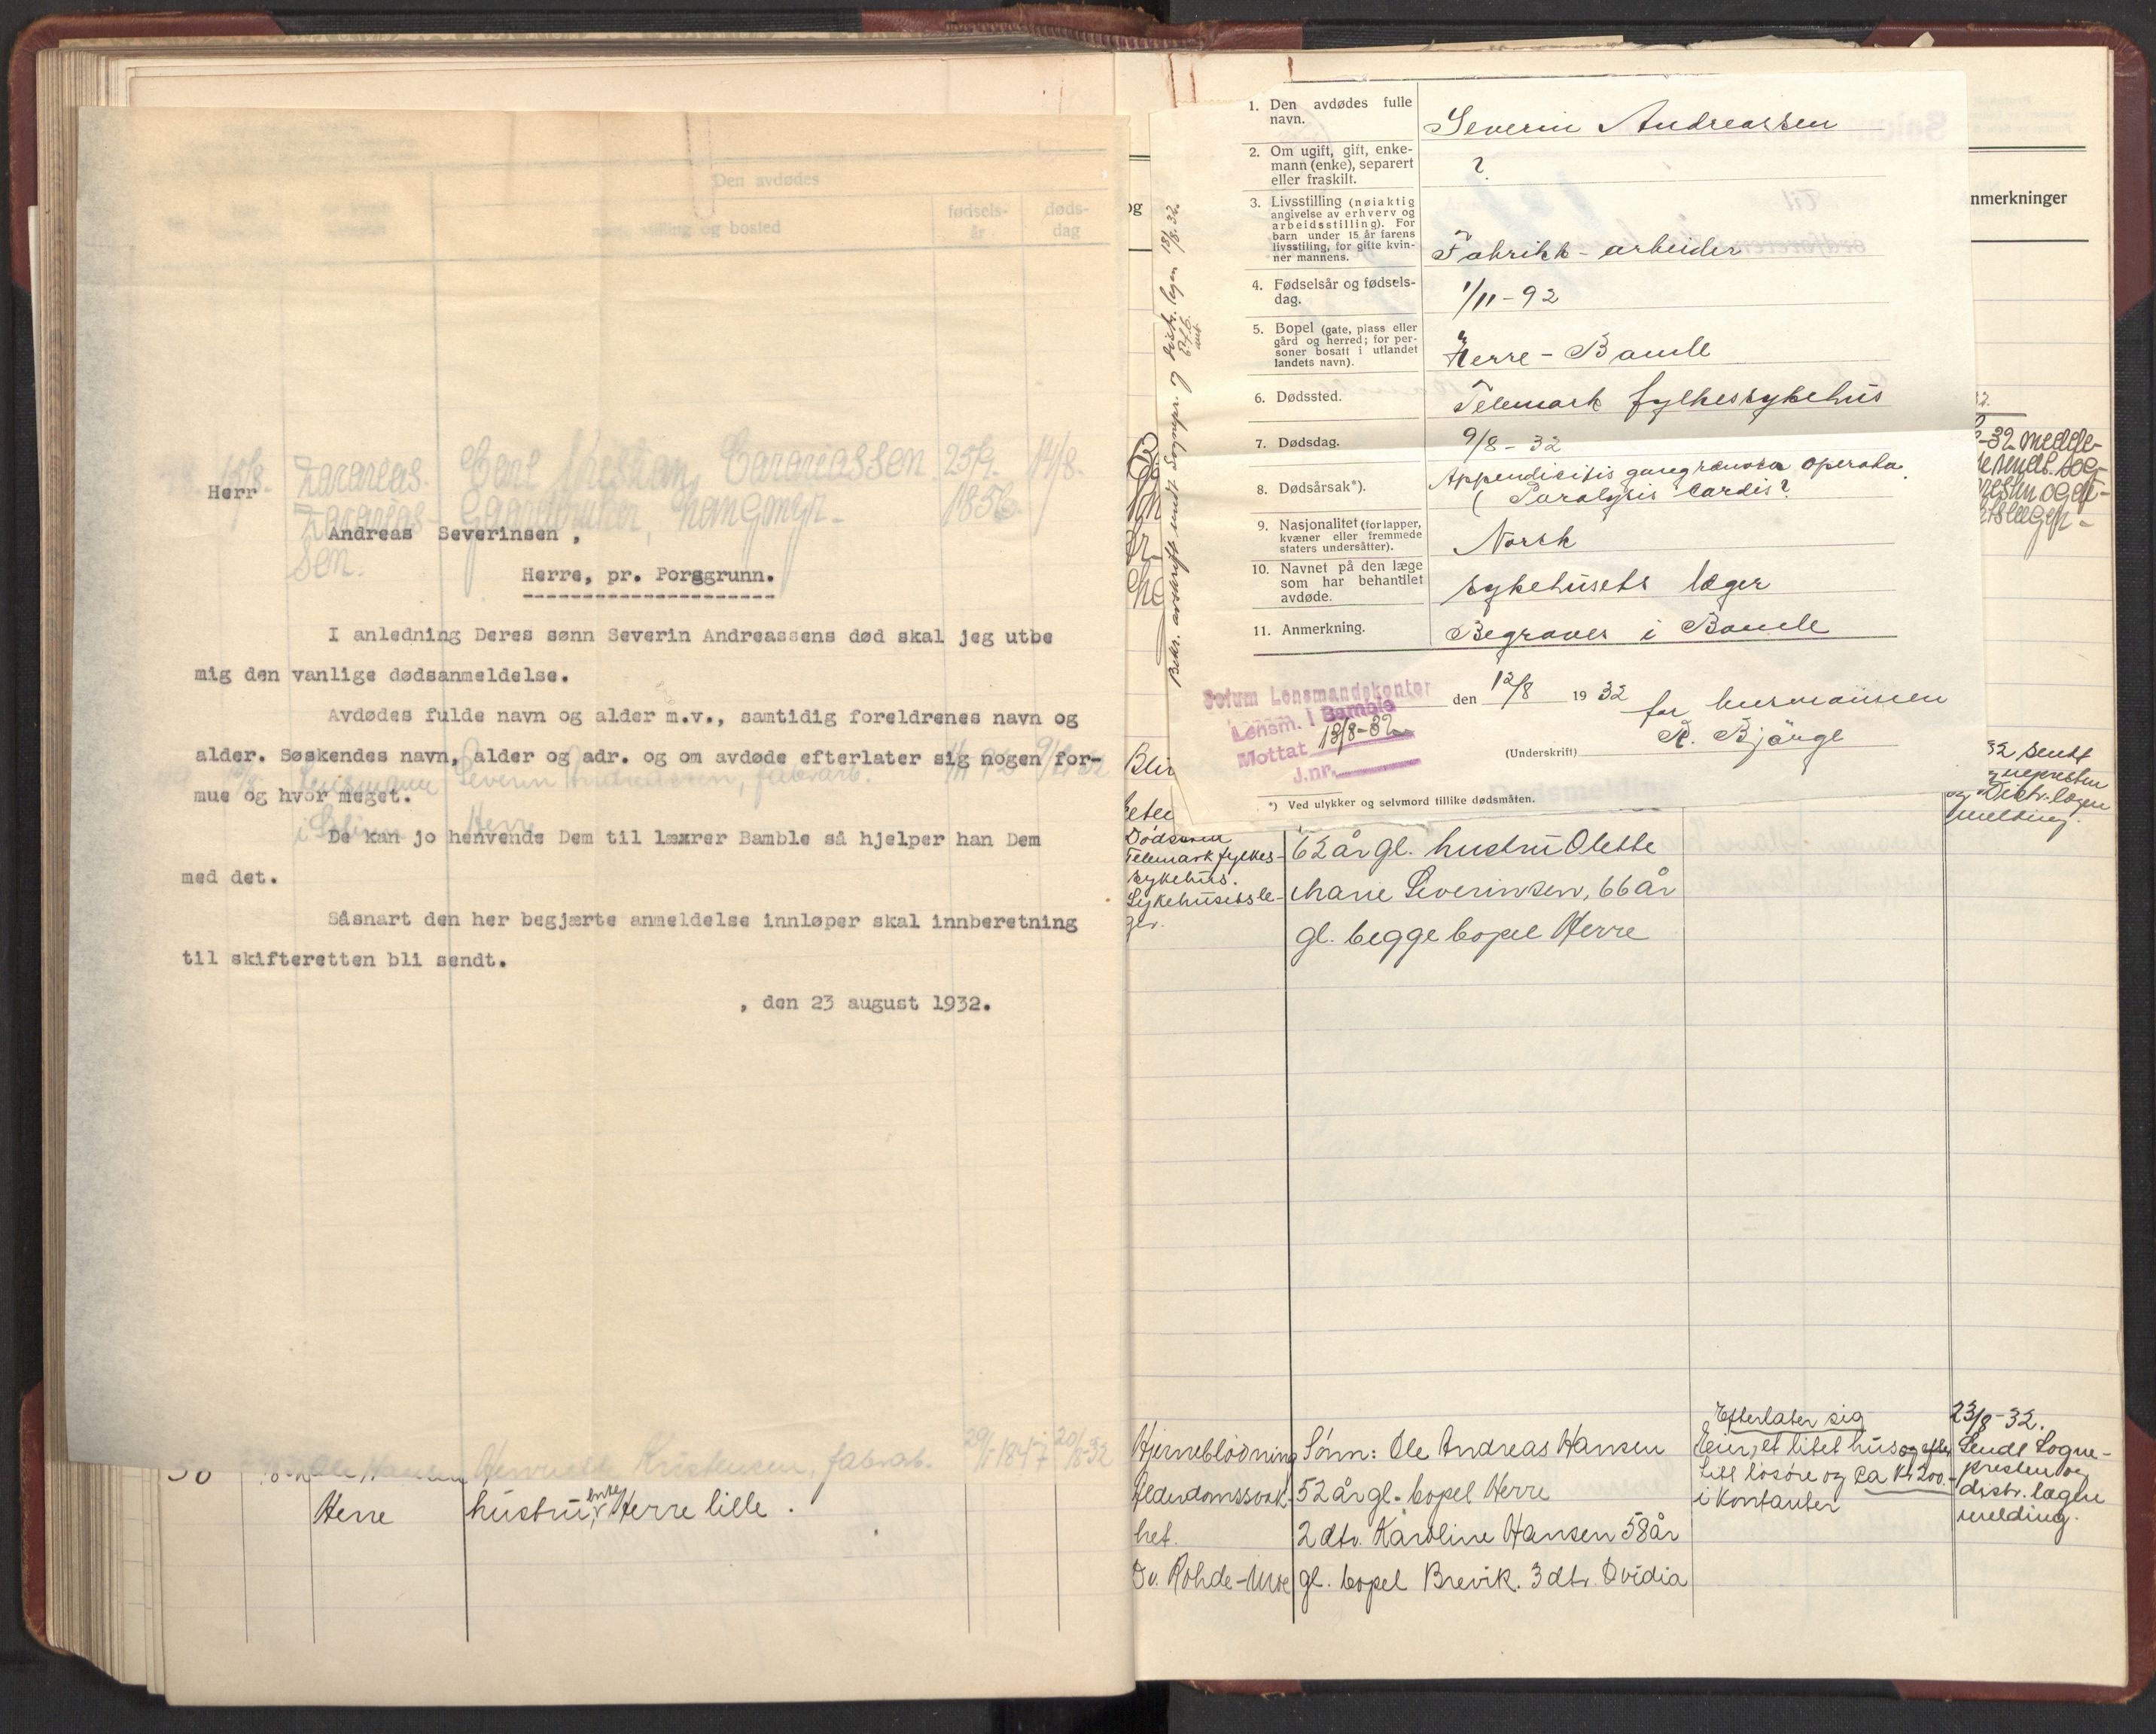 Den avdødes
navn, stilling og bosted
fødsels-
år
døds-
dag
Herr
Andreas Severinsen,
Herre, pr. Porsgrunn.
I anledning Deres sønn Severin Andreassens død skal jeg utbe
mig den vanlige dødsanmeldelse.
Avdødes fulde navn og alder m.v., samtidig foreldrenes navn og
alder. Søskendes navn, alder og adr. og om avdøde efterlater sig nogen for-
mue og hvor meget.
De kan jo henvende Dem til lærer Bamble så hjelper han Dem
med det.
Såsnart den her begjærte anmeldelse innløper skal innberetning
til skifteretten bli sendt.
, den 23 august 1932.
Zacarias
Zacarias-
sen.
Carl Kristian Cacariassen
Gaardbruker, Langmyr
25/9.
1856
14/8.
Lensmann
i Solum
Severin Andreassen, fabr.arb.
Herre
1/11 92
9/8 32
Ole Hansen
Herre
Kristensen, fabrarb.
hustru, enke Herre lille.
29/1-1847
20/8-32
1. Den avdødes fulle
navn.
Severin Andreassen
2. Om ugift, gift, enke-
mann (enke), separert
eller fraskilt.
?
3. Livsstilling (nøiaktig
angivelse av erhverv og
arbeidsstilling). For
barn under 15 år farens
livsstilling, for gifte kvin-
ner mannens.
Fabrikk-arbeider
4. Fødselsår og fødsels-
dag.
1/11-92
5. Bopel (gate, plass eller
gård og herred; for per-
soner bosatt i utlandet
landets navn).
Herre - Bamle
6. Dødssted.
Telemark fylkessykehus
7. Dødsdag.
9/8-32
8. Dødsårsak*).
Appendicitis gangrænosa operata.
( Paralysis cordis?
9. Nasjonalitet (for lapper,
kvæner eller fremmede
staters undersåtter).
Norsk
10. Navnet på den læge
som har behandlet
avdøde.
Sykehusets læger
11. Anmerkning.
Begraves i Bamle
Solum Lensmandskontor
den 12/8 1932
Lensm. i Bamble
Mottat 13/8-32
J.nr.
for lensmannen
R. Bjørge
(Underskrift)
*) Ved ulykker og selvmord tillike dødsmåten.
Bekr. avskrift sendt Sognepr. og distr. legen 18/8-32.
nmerkninger
-32 medde-
32 sendt
og Distr. lægen
melding.
Telemark fylkes-
sykehus.
Sykehusetsle-
ger.
62 år gl. hustru Olette
Marie Severinsen, 66 år
gl. begge bopel Herre
Hjerneblødning
Alderdomssvak-
het.
Dr. Rohde-Moe
Sønn: Ole Andreas Hansen
52 år gl. bopel Herre
2 dtr. Karoline Hansen 58 år
gl. bopel Brevik. 3 dtr. Ovidia
Efterlater sig
et litet hus og efter
litt løsøre og ca kr 200.-
i kontanter
23/8-32.
Sendt Sogne-
presten og
distr. lægen
melding.